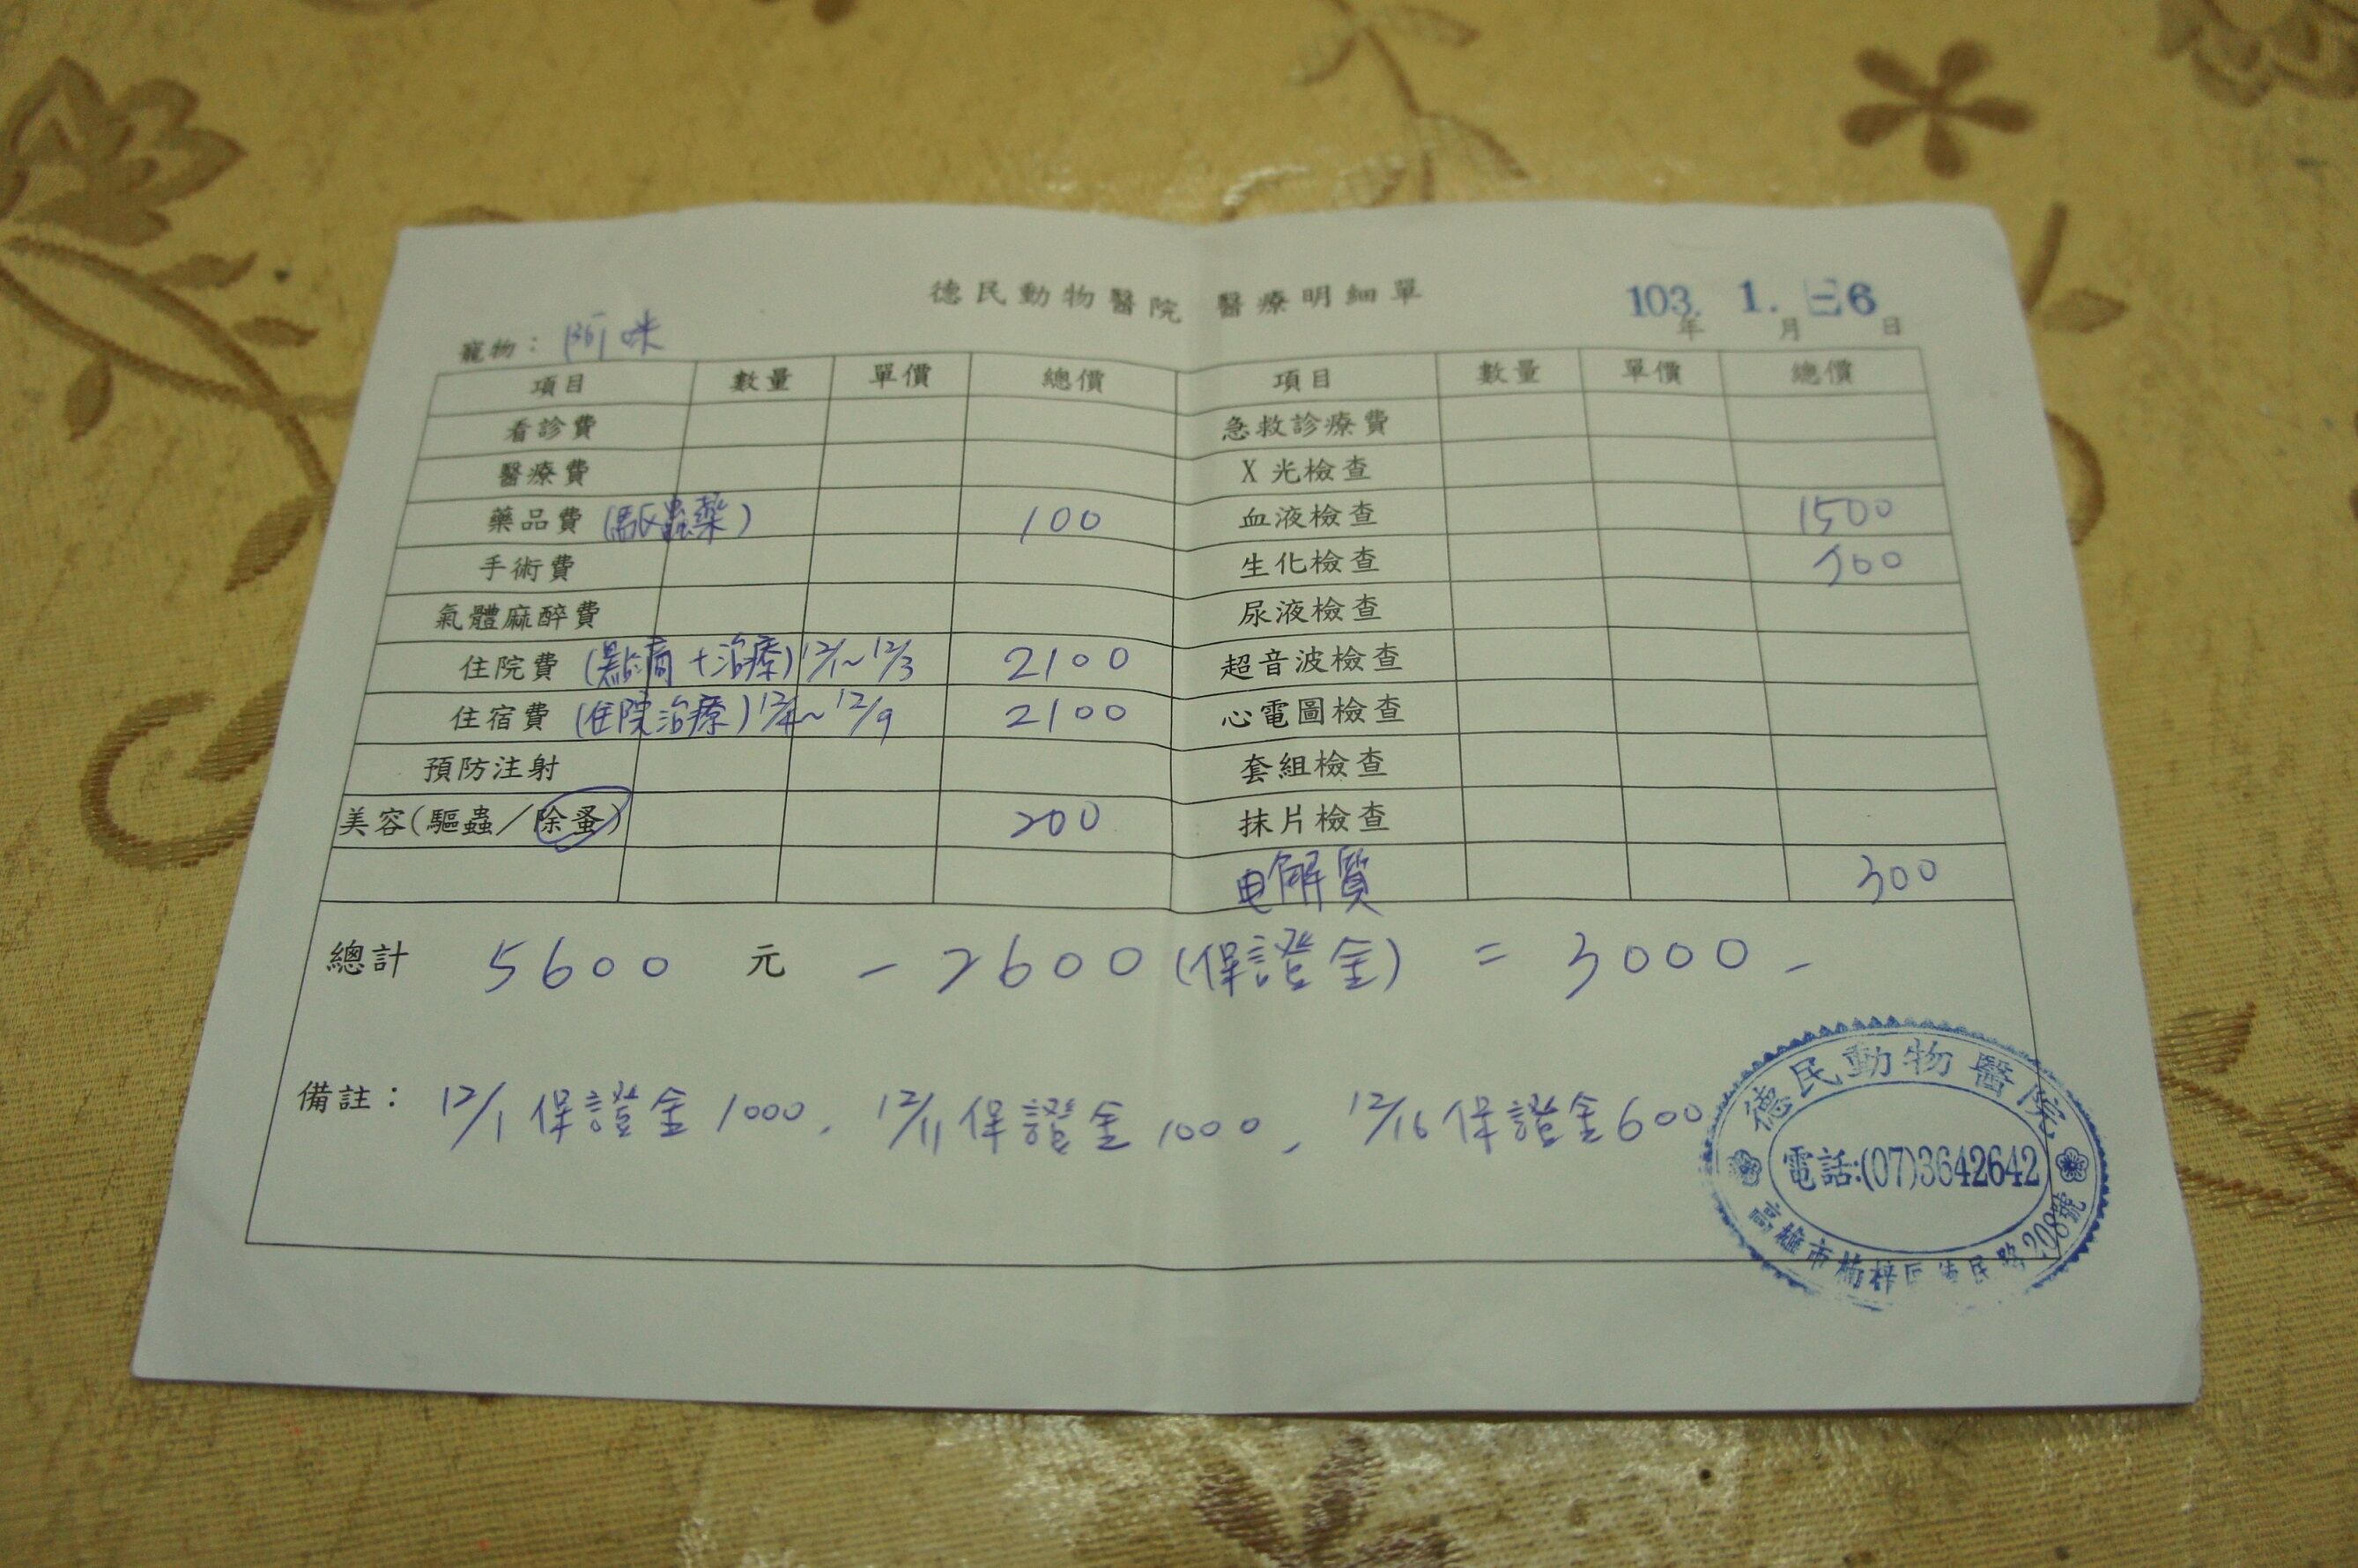 德民動物醫院 醫療明細單
103. 1. 6
年 月 日
寵物： 阿咪
項目 數量 單價 總價 項目 數量 單價 總價
看診費 急救診療費
醫療費 X光檢查
藥品費 (驅蟲藥) 100 血液檢查 1500
手術費 生化檢查
氣體麻醉費 尿液檢查
住院費 (點滴+治療) 12/1~12/3 2100 超音波檢查
住宿費 (住院治療) 12/4~12/9 2100 心電圖檢查
預防注射 套組檢查
美容(驅蟲／除蚤) 200 抹片檢查
电解質 300
總計 5600 元 - 2600 (保證金) = 3000 -
備註： 12/1 保證金 1000, 12/11 保證金 1000, 12/16 保證金 600
德民動物醫院
電話:(07)3642642
高雄市楠梓區德民路208號